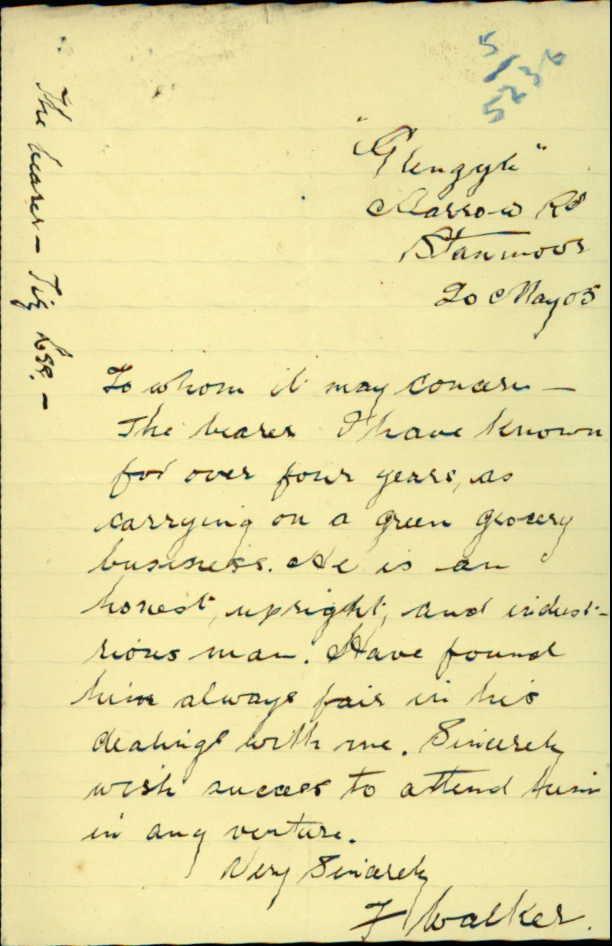 5/5236
"Glengyle"
Marrow Rd
Stanmore
20 May 05
The bearer — Tiy Lee. —
To whom it may concern —
The bearer I have known
for over four years, as
carrying on a green grocery
business. He is an
honest, upright, and indust-
rious man. Have found
him always fair in his
dealings with me. Sincerely
wish success to attend him
in any venture.
Very Sincerely
F Walker.